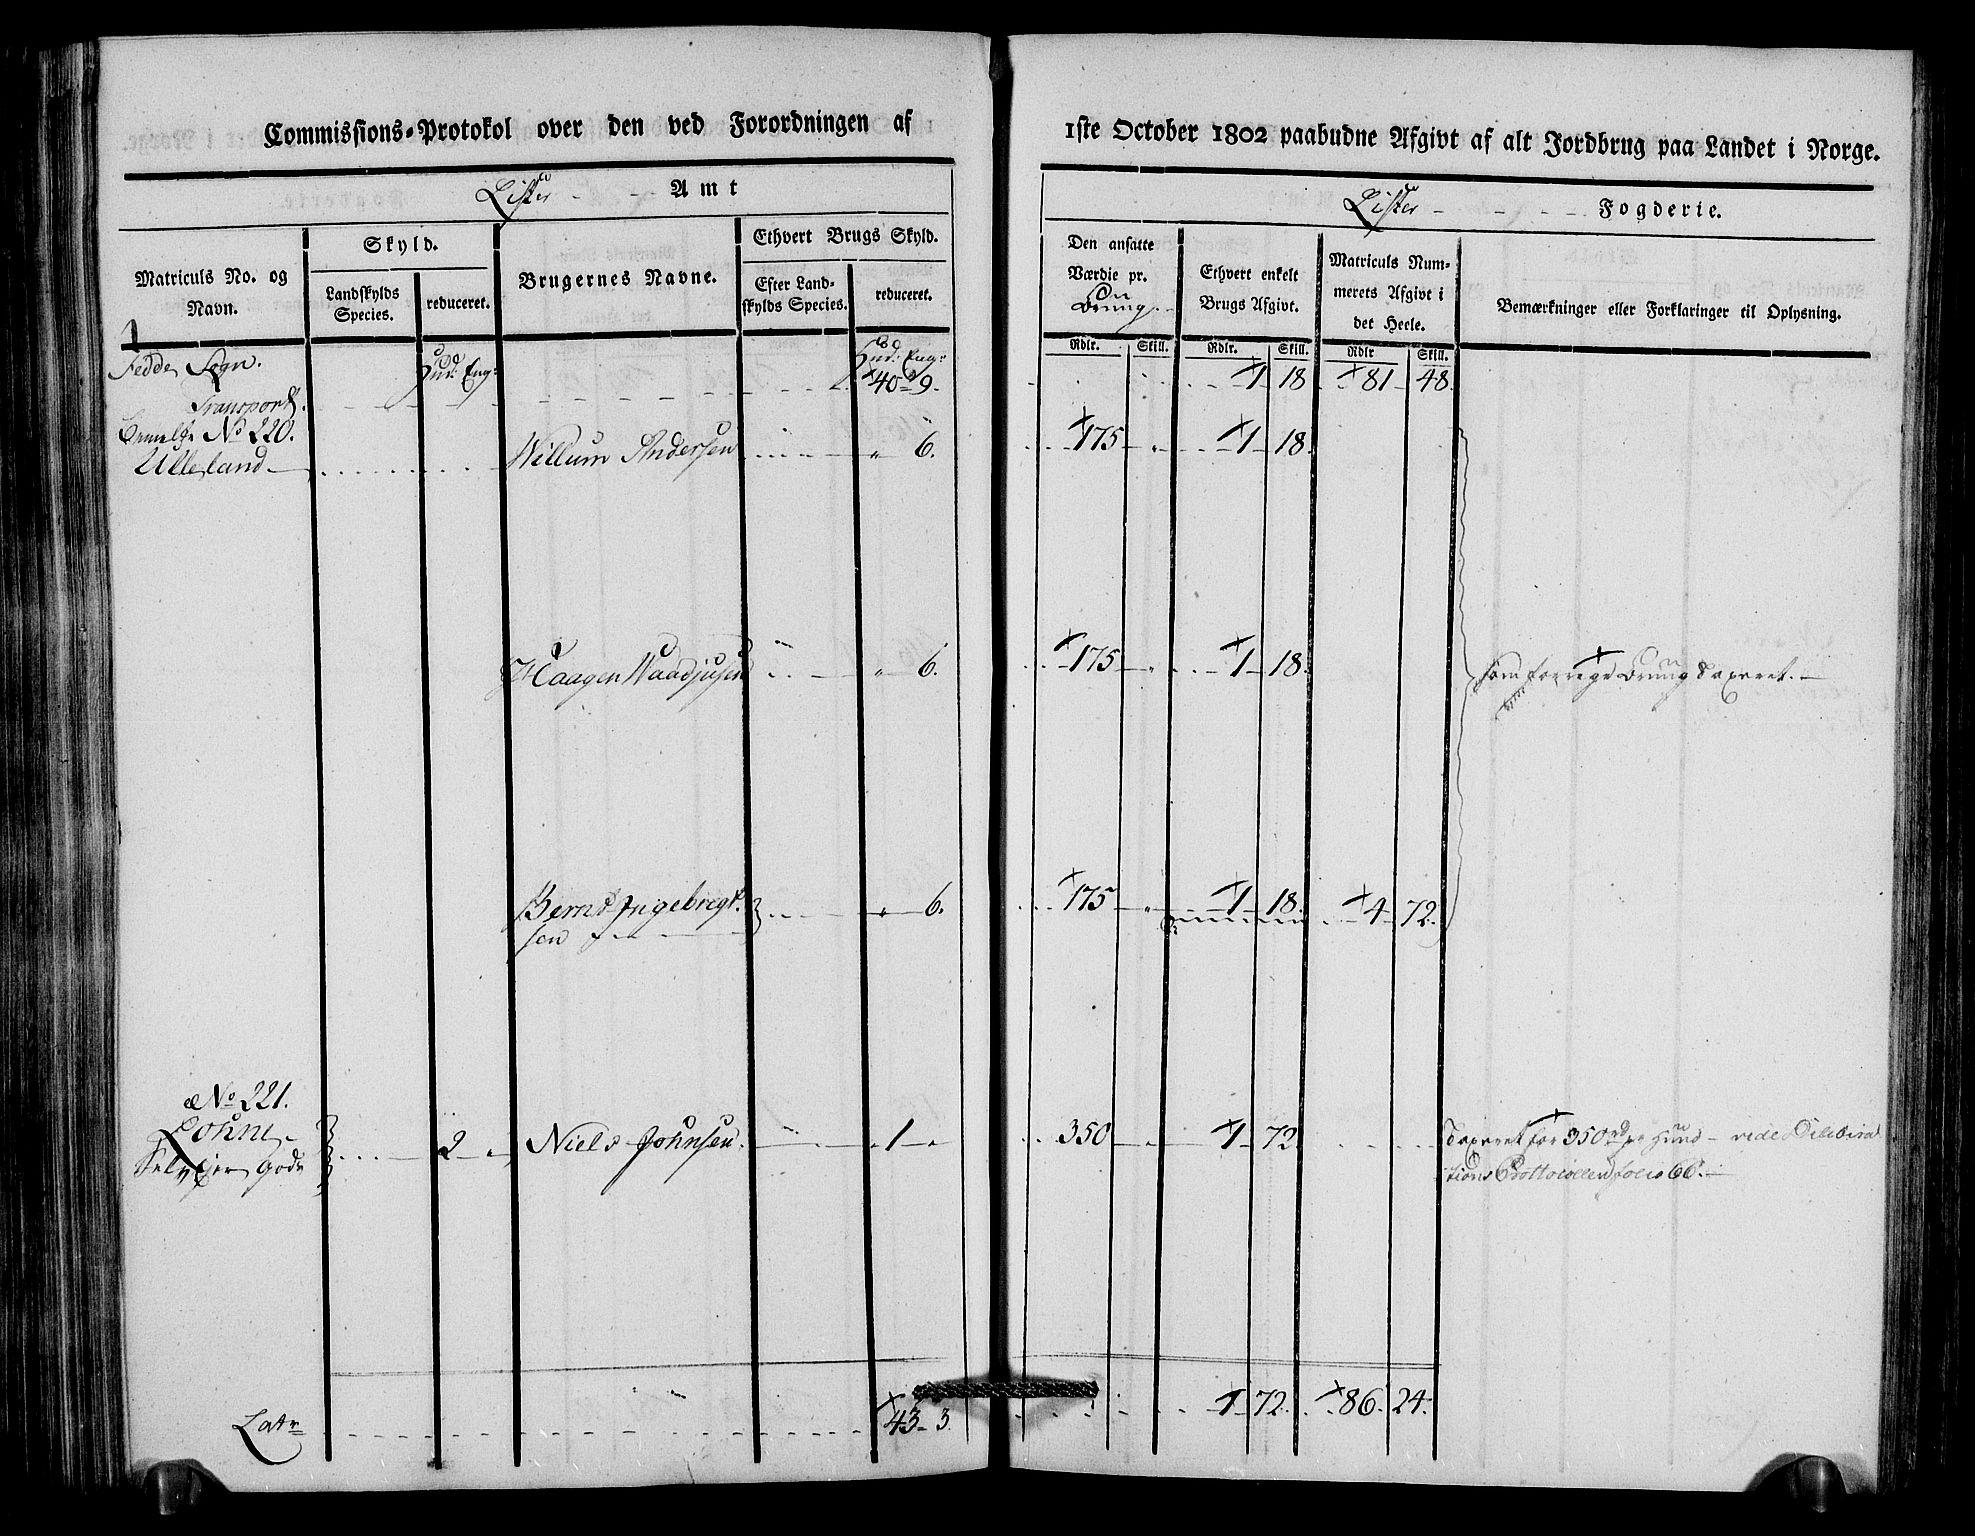 Commissions-Protokol over den ved Forordningen af
Lister Amt
Matriculs No. og Navn.
Skyld.
Landskylds Species.
reduceret.
Brugernes Navne.
Ethvert Brugs Skyld.
Efter Landskylds Species.
reduceret.
Fedde Sogn.
Hud. Eng.
Hud. Eng.
Transport
40 9.
No 220.
Ulleland
Willum Andersen
" 6.
Haagen
" 6.
Bernt Ingebregtsen
" 6.
No 221.
Lohne
2 "
Niels Johnsen
1 "
Selvejer Gods
Latr
43 3.
1ste October 1802 paabudne Afgivt af alt Jordbrug paa Landet i Norge.
Lister Fogderie.
Den ansatte Værdie pr.
Ethvert enkelt Brugs Afgivt.
Matriculs Nummerets Afgivt i det Heele.
Bemærkninger eller Forklaringer til Oplysning.
Rdlr. Skill. Rdlr. Skill. Rdlr Skill.
1 18 81 48.
175 " 1 18.
175 " 1 18.
som forrige Brug Taxeret.
175 " 1 18. 4 72.
350 1 72
Taxeret for 350 rd pr Huud vide Delibera
tions Prottocollen folio 66.
1 72. 86. 24.